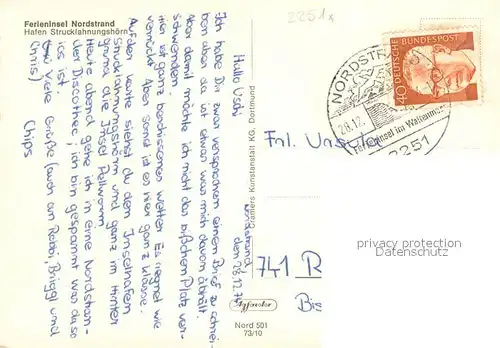 Ferieninsel Nordstrand
Hafen Strucklahnungshörn
2251
Nordstrand
den 28.12.74
Hallo Uschi
Ich habe Dir zwar versprochen einen Brief zu schrei-
ben aber da ist etwas was mich davon abhält.
Aber damit möchte ich nicht das bißchen Platz ver-
schwenden.
Hier ist ganz beschissenes Wetter. Es regnet wie
verrückt. Aber sonst ist es hier ganz
Auf der Karte siehst du den Inselhafen
Strucklahnungshörn und ganz im Hinter
grund die Insel Pellworm.
Heute abend gehe ich in eine Nordstran-
der Discothee; ich bin gespannt was da so
los ist.
Viele Grüße (auch an Robbi, Briggl und
Chris)
Chips
Cramers Kunstanstalt KG, Dortmund
DEUTSCHE BUNDESPOST
40
NORDSTRAND
28.12.
Ferieninsel im Wattenmeer
2251
Frl. Ursula
741 R
privacy protection
Datenschutz
Agfacolor
Nord 501
73/10